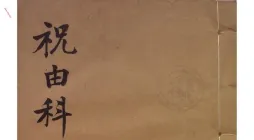 祝由科